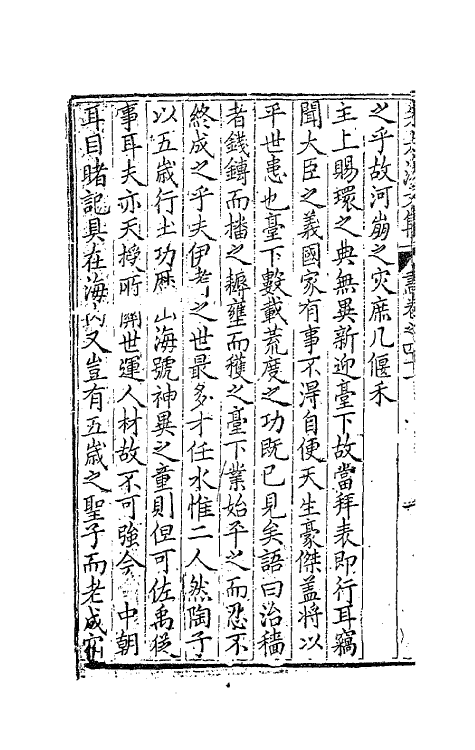 之乎故河崩之灾庶几偃禾
主上賜環之典無異新迎臺下故當拜表即行耳竊
聞大臣之義國家有事不淂自便天生豪傑盖將以
平世患也臺下數載荒度之功既已見矣語曰治穡
者錢鎛而播之耨壅而穫之臺下業始平之而忍不
終成之乎夫伊耆之世最多才任水惟二人然陶子
以五歲行土功厤 山海號神異之童則但可佐禹從
事耳夫亦天授所開世運人材故不可強今 中朝
耳目睹記具在海内又豈有五歲之聖子而老成